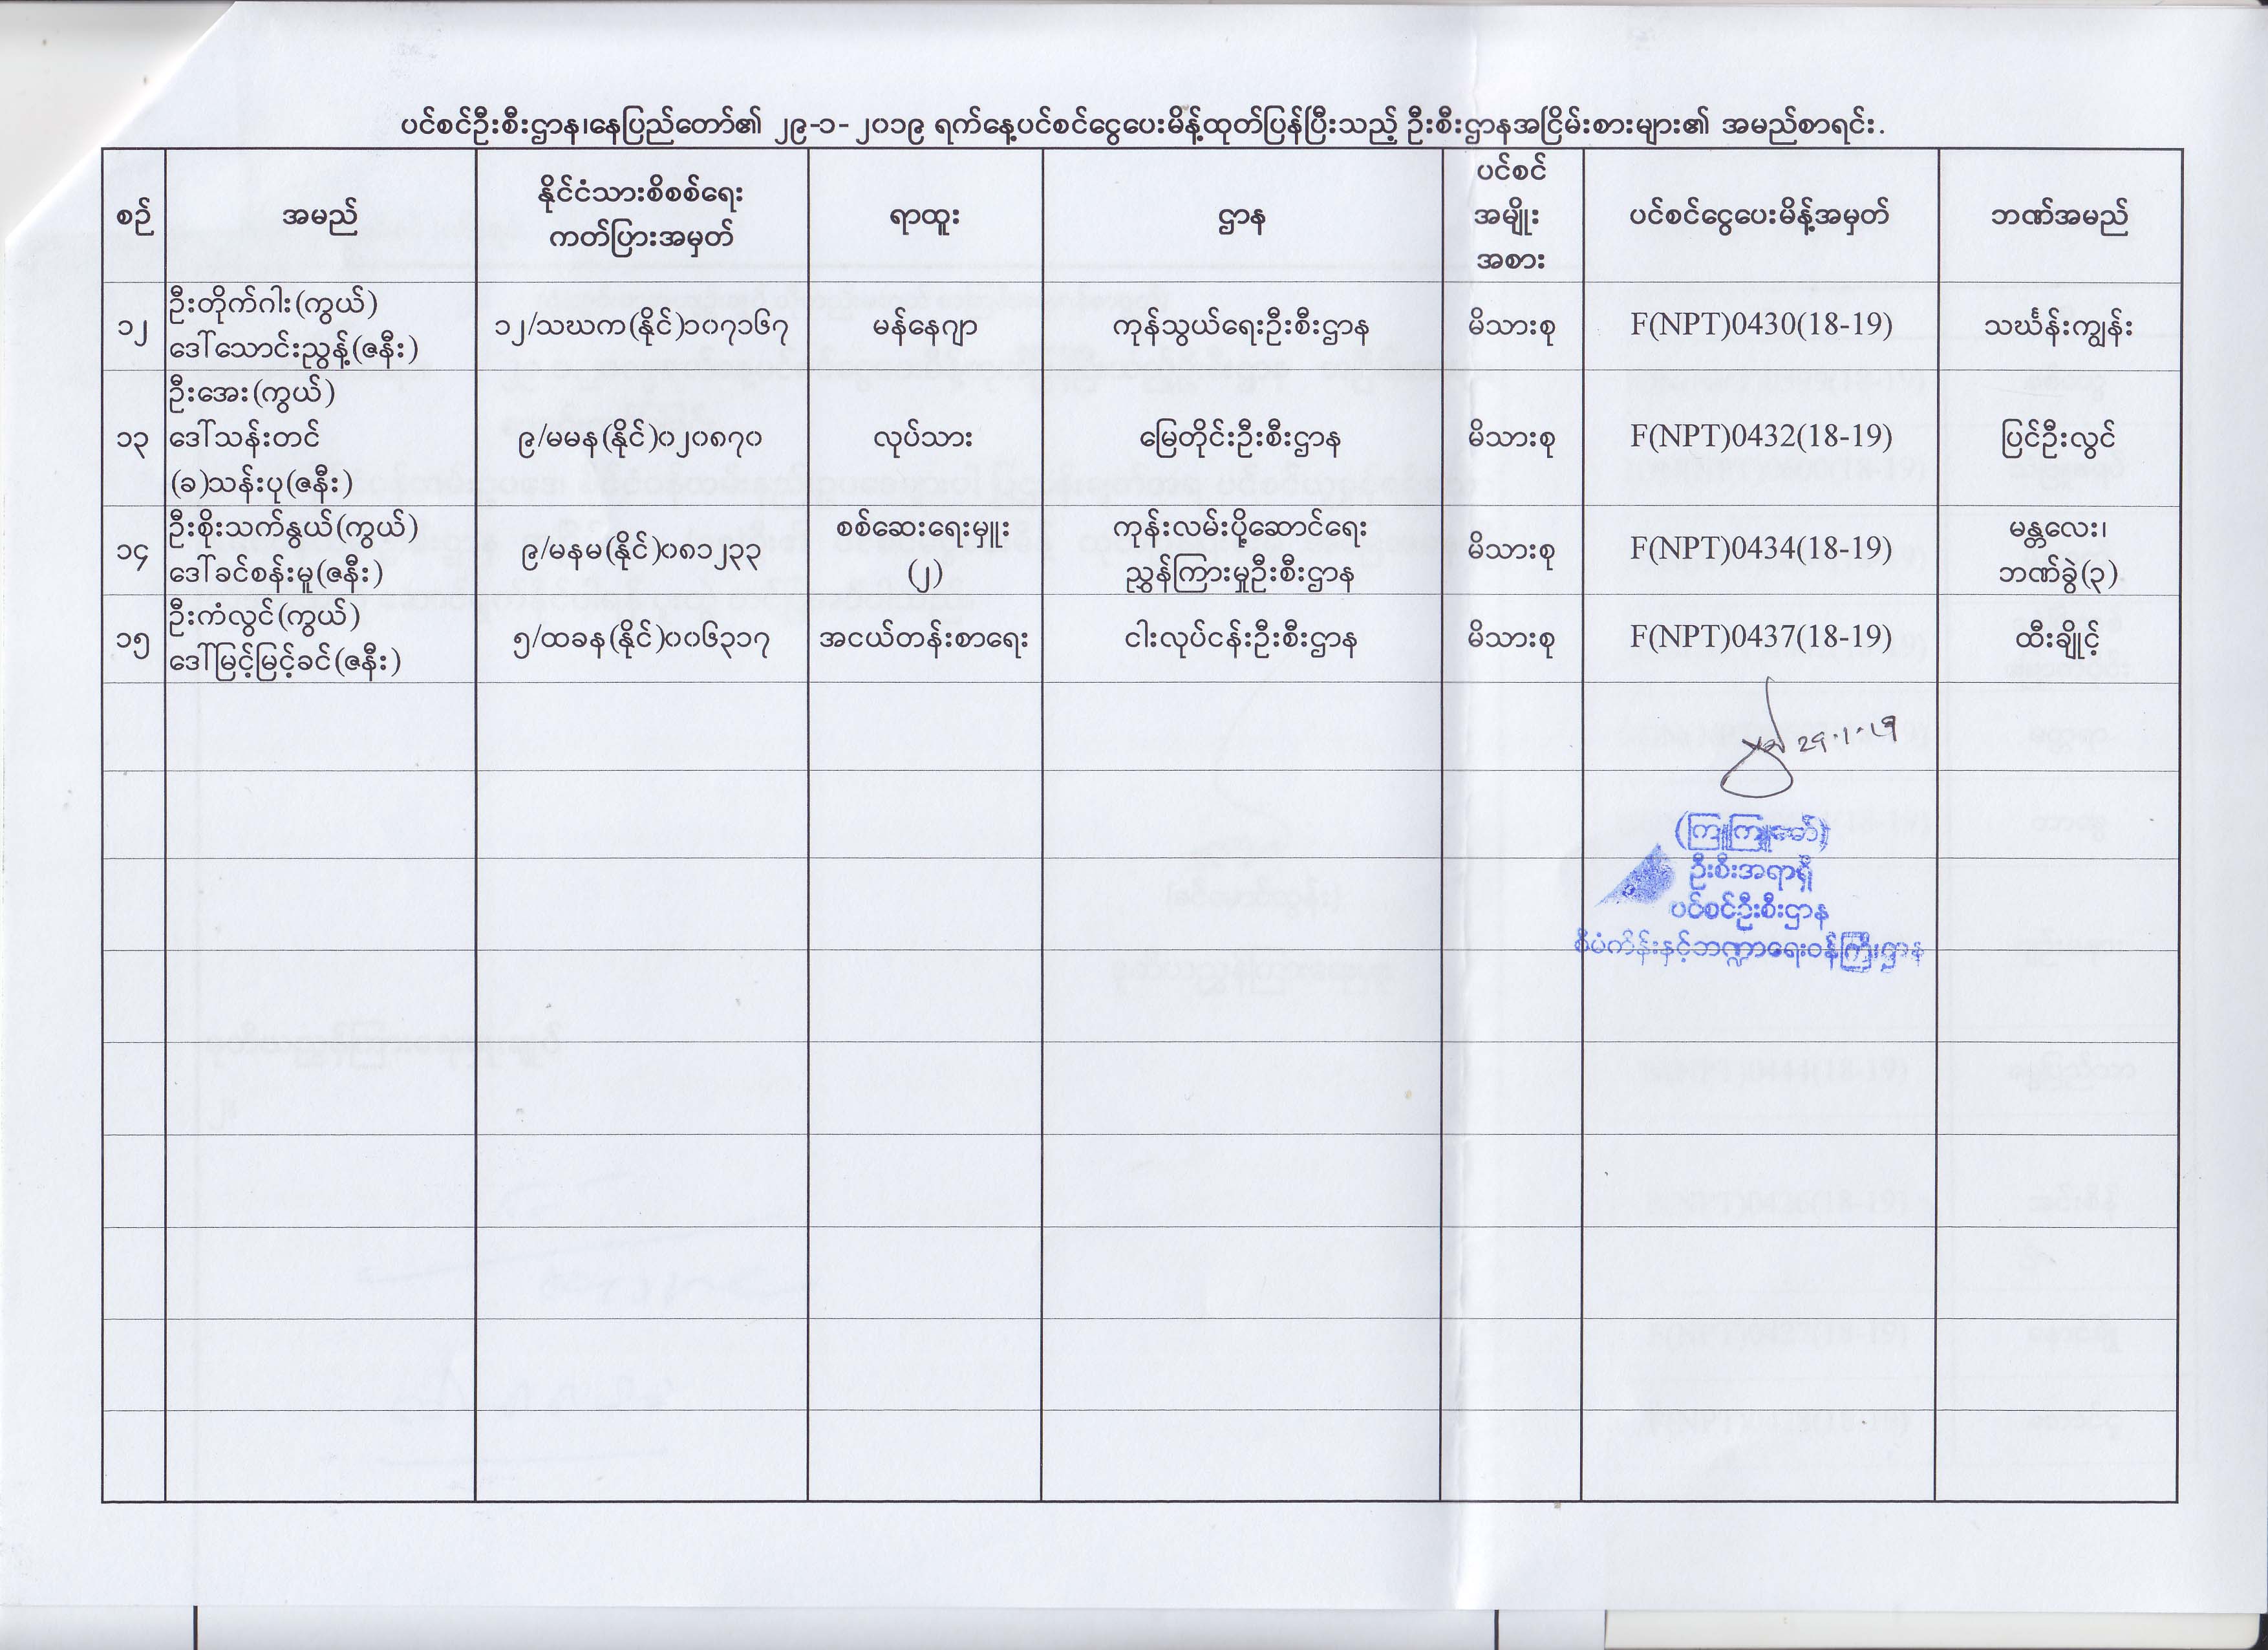 ပင်စင်ဦးစီးဌာန၊နေပြည်တော်၏ ၂၉-၁-၂၀၁၉ ရက်နေ့ပင်စင်ငွေပေးမိန့်ထုတ်ပြန်ပြီးသည့် ဦးစီးဌာနအငြိမ်းစားများ၏ အမည်စာရင်း.
စဉ် အမည် နိုင်ငံသားစိစစ်ရေး ကတ်ပြားအမှတ် ရာထူး ဌာန ပင်စင် အမျိုး အစား ပင်စင်ငွေပေးမိန့်အမှတ် ဘဏ်အမည်
၁၂ ဦးတိုက်ဂါး(ကွယ်) ဒေါ်သောင်းညွန့်(ဇနီး) ၁၂/သဃက(နိုင်)၁၀၇၁၆၇ မန်နေဂျာ ကုန်သွယ်ရေးဦးစီးဌာန မိသားစု F(NPT)0430(18-19) သင်္ဃန်းကျွန်း
၁၃ ဦးအေး(ကွယ်) ဒေါ်သန်းတင် (ခ)သန်းပု(ဇနီး) ၉/မမန(နိုင်)၀၂၀၈၇၀ လုပ်သား မြေတိုင်းဦးစီးဌာန မိသားစု F(NPT)0432(18-19) ပြင်ဦးလွင်
၁၄ ဦးစိုးသက်နွယ်(ကွယ်) ဒေါ်ခင်စန်းမူ(ဇနီး) ၉/မနမ(နိုင်)၀၈၁၂၃၃ စစ်ဆေးရေးမှူး (၂) ကုန်းလမ်းပို့ဆောင်ရေး ညွှန်ကြားမှုဦးစီးဌာန မိသားစု F(NPT)0434(18-19) မန္တလေး၊ ဘဏ်ခွဲ(၃)
၁၅ ဦးကံလွင်(ကွယ်) ဒေါ်မြင့်မြင့်ခင်(ဇနီး) ၅/ထခန(နိုင်)၀၀၆၃၁၇ အငယ်တန်းစာရေး ငါးလုပ်ငန်းဦးစီးဌာန မိသားစု F(NPT)0437(18-19) ထီးချိုင့်
29.1.19
ဦးစီးအရာရှိ
ပင်စင်ဦးစီးဌာန
စီမံကိန်းနှင့်ဘဏ္ဍာရေးဝန်ကြီးဌာန